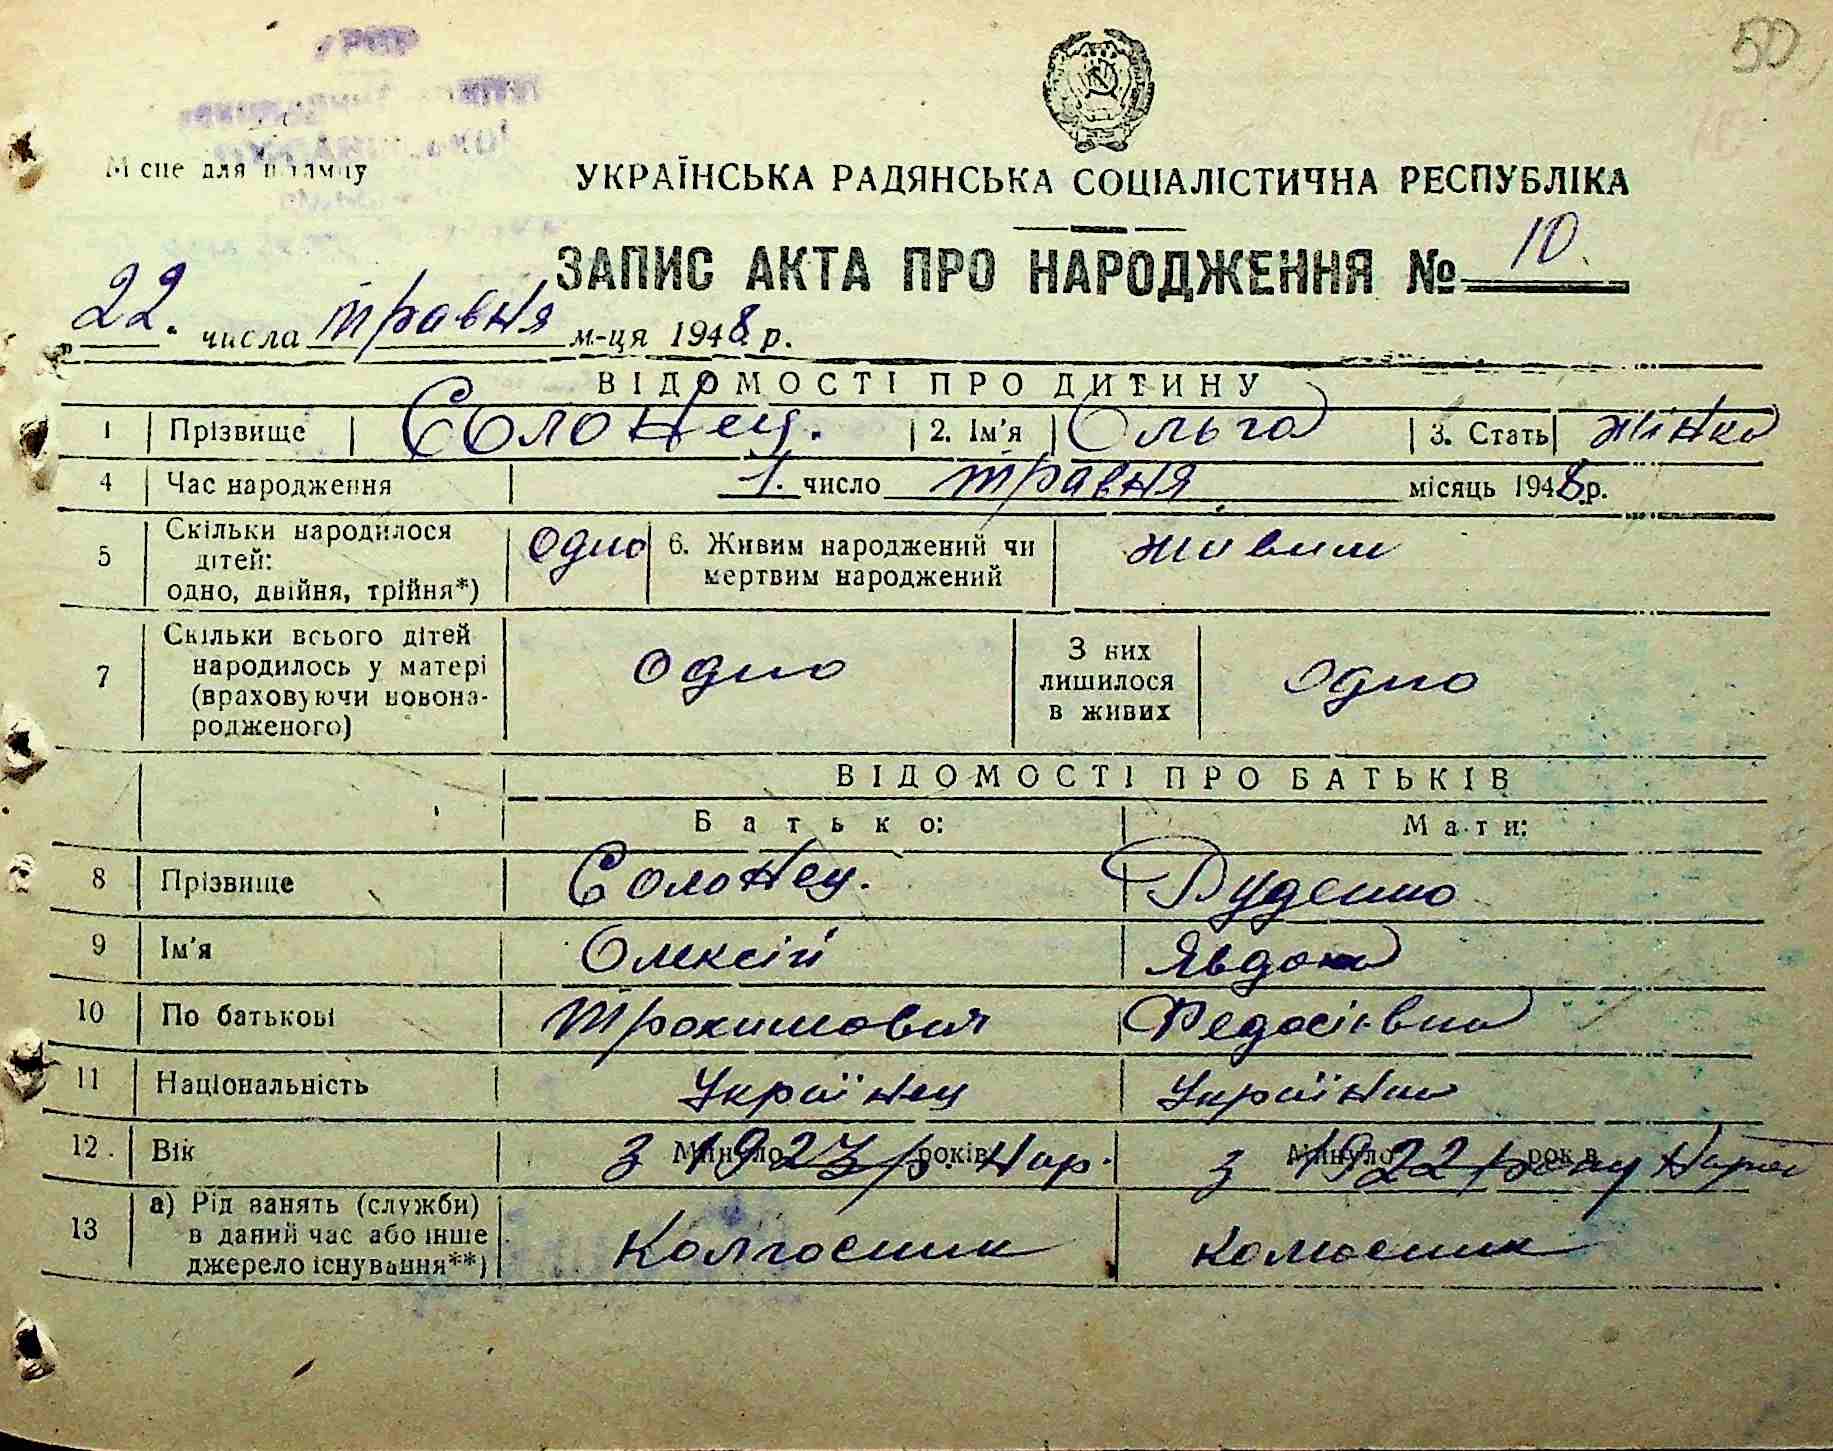 50
Місце для штампу
УКРАЇНСЬКА РАДЯНСЬКА СОЦІАЛІСТИЧНА РЕСПУБЛІКА
ЗАПИС АКТА ПРО НАРОДЖЕННЯ № 10.
22. числа травня м-ця 1948 р.
ВІДОМОСТІ ПРО ДИТИНУ
1 Прізвище Солонец. 2. Ім'я Ольга 3. Стать жінка
4 Час народження 1. число травня місяць 1948.р.
5 Скільки народилося дітей: одно, двійня, трійня*) одно 6. Живим народжений чи мертвим народжений живим
7 Скільки всього дітей народилось у матері (враховуючи новонародженого) одно З них лишилося в живих одно
ВІДОМОСТІ ПРО БАТЬКІВ
Батько: Мати:
8 Прізвище Солонец. Руденко
9 Ім'я Олексій Явдоха
10 По батькові Трохимович Федосіївна
11 Національність Українец Українка
12. Вік З 1923 р. нар. Минуло років з 1922 року Минуло років
13 а) Рід занять (служби) в даний час або інше джерело існування**) Колгоспник колгоспник